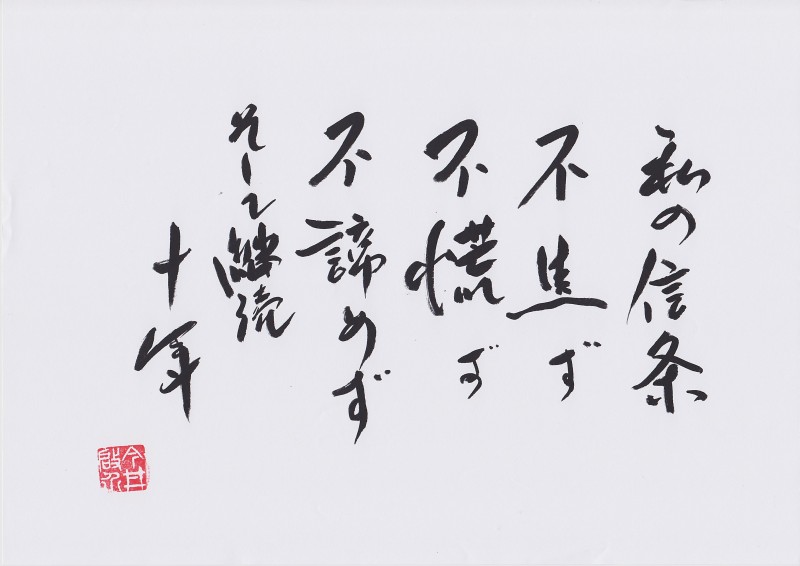 私の信条
不焦ず
不慌ず
不諦めず
そして継続
十年
今井